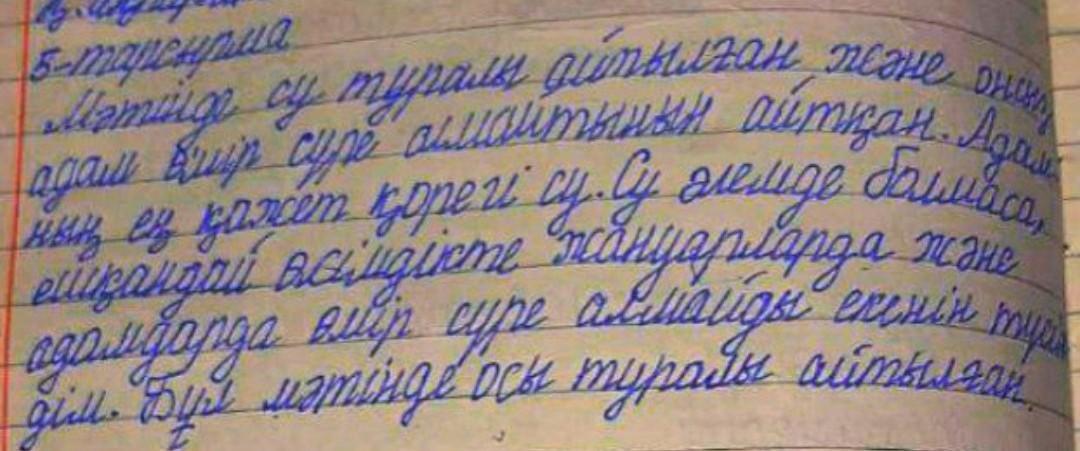 5-тапсырма
Мәтінде су туралы айтылған және онсыз
адам өмір сүре алмайтынын айтқан. Адам-
ның ең қажет қорегі су. Су әлемде болмаса,
ешқандай өсімдікте жануарларда және
адамдарда өмір сүре алмайды екенін
дім. Бұл мәтінде осы туралы айтылған.